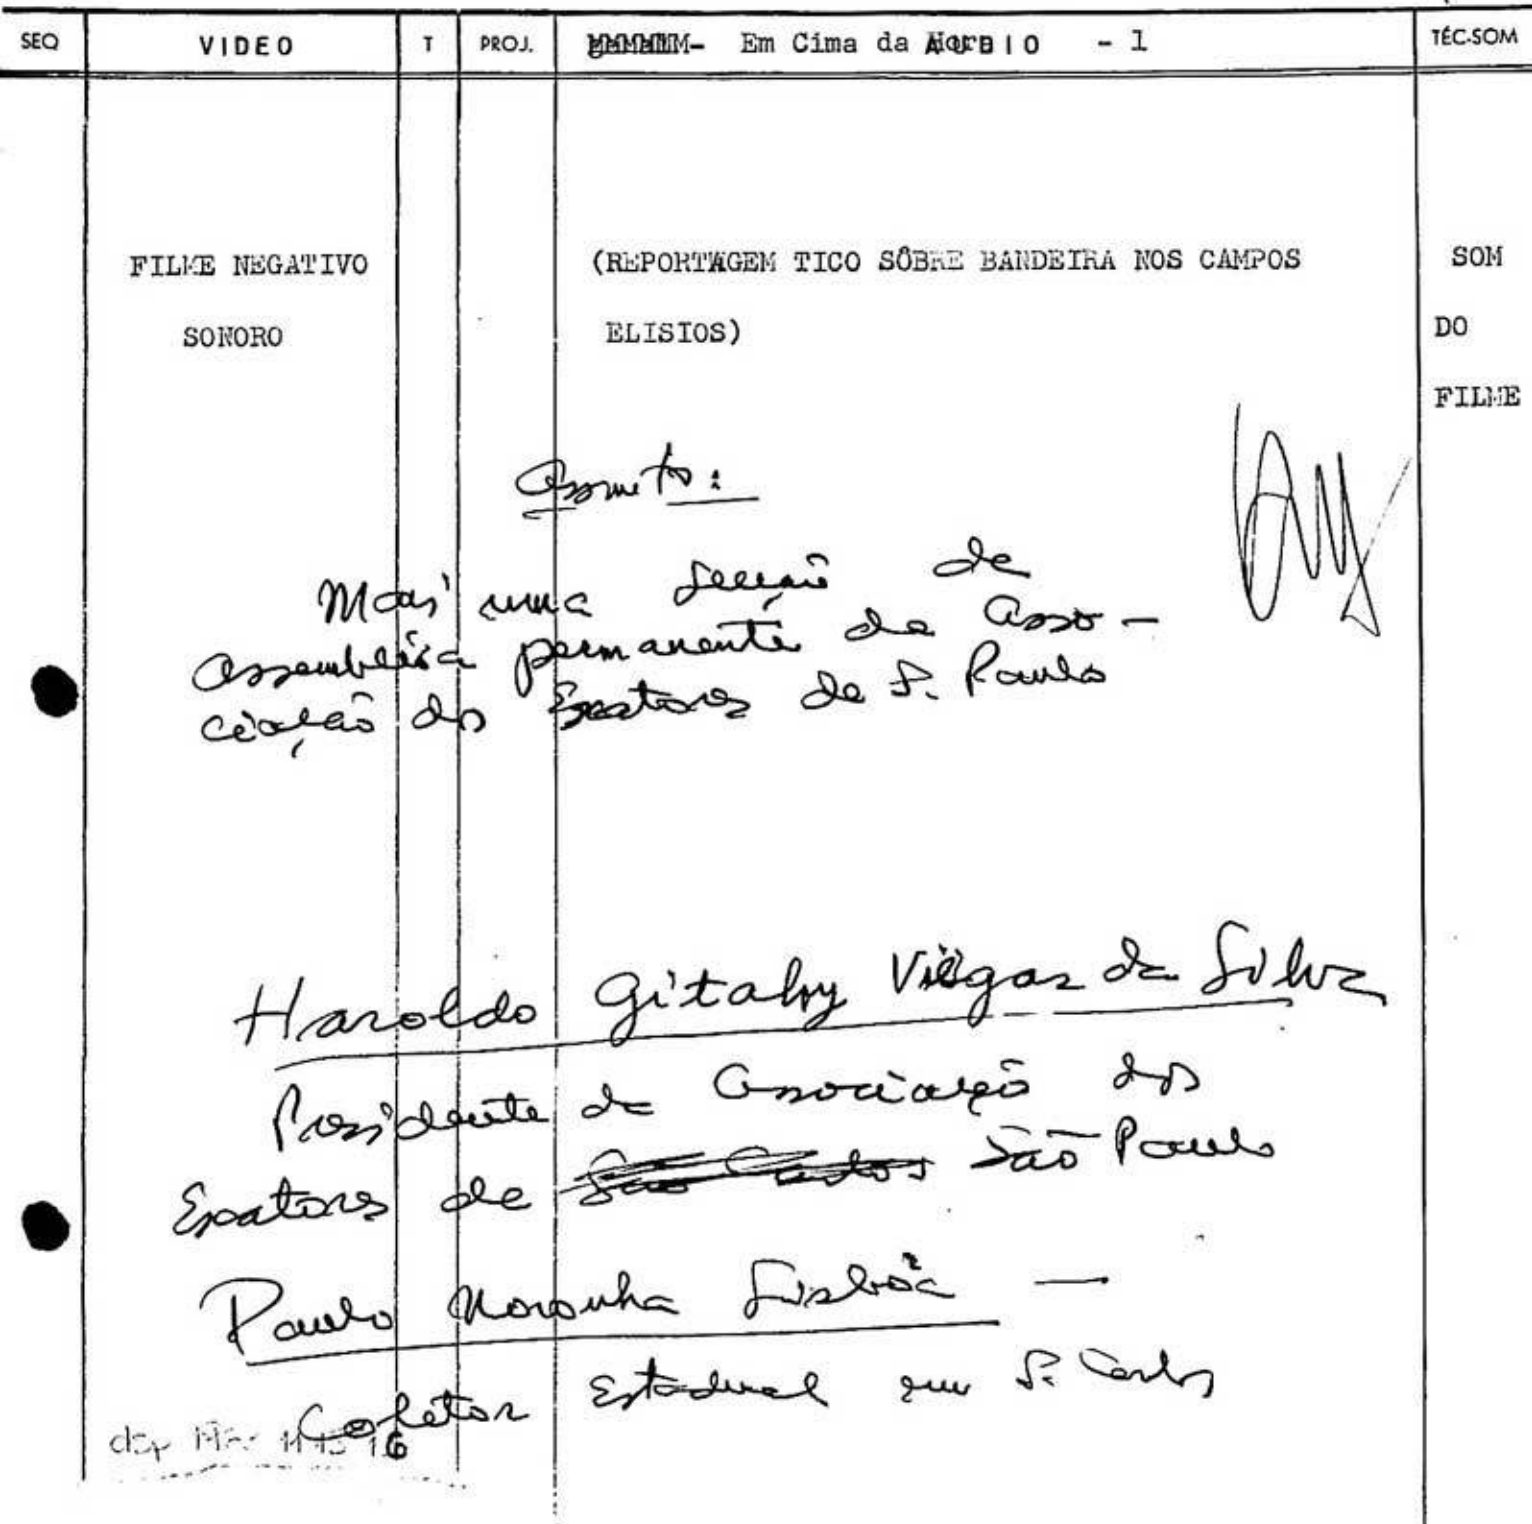 SEQ VIDEO T PROJ. Em Cima da Hora AUDIO - 1 TÉC-SOM
FILME NEGATIVO (REPORTAGEM TICO SÔBRE BANDEIRA NOS CAMPOS SOM
SONORO ELISIOS) DO
FILME
Assunto:
Mais uma secção de
Assembléia permanente da Asso-
ciação dos Exatores de S. Paulo
Haroldo Gitahy Viégas da Silva
Presidente da Associação dos
Exatores de São Carlos São Paulo
Paulo Noronha Lisbôa —
Coletor Estadual em S. Carlos